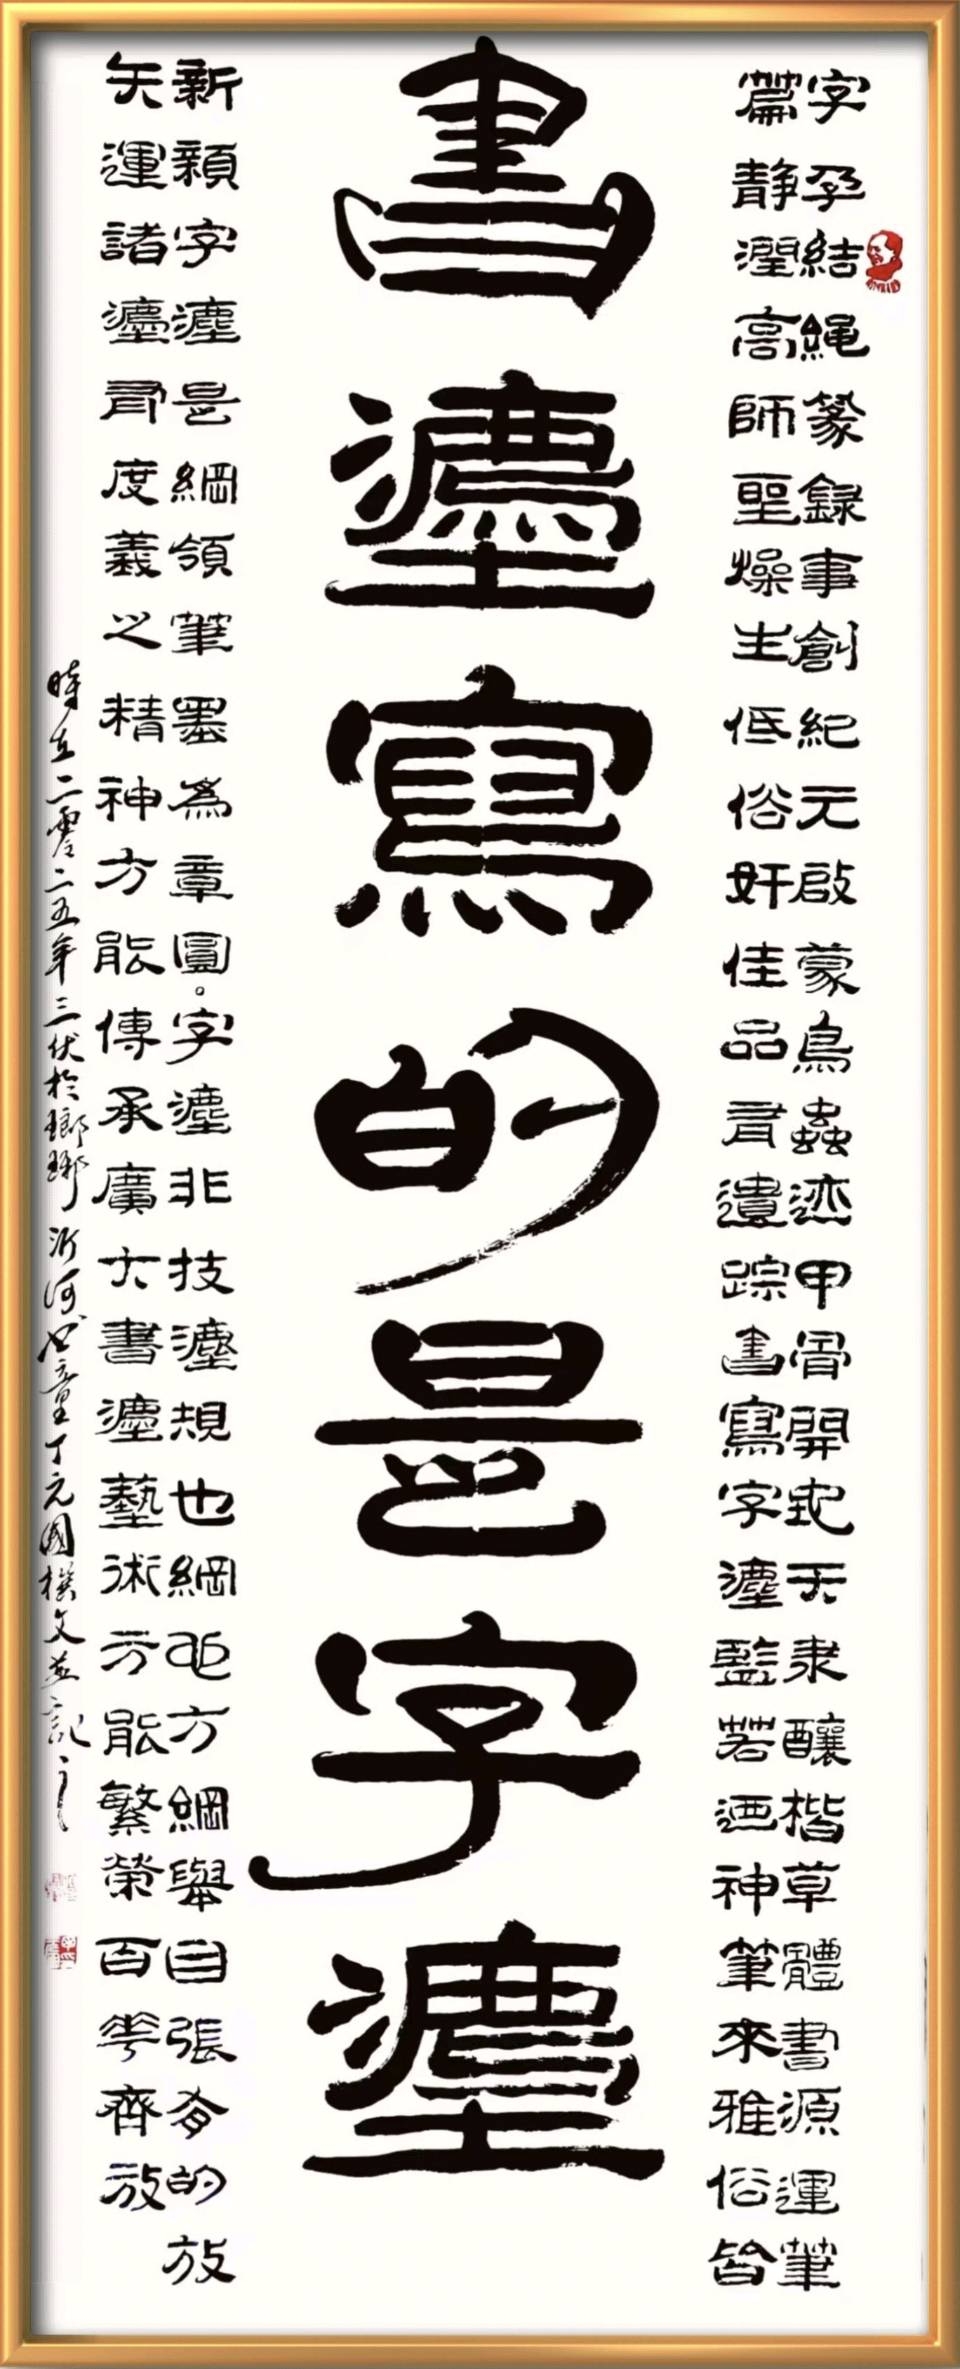 字孕結繩篆録事創紀元啟蒙鳥蟲迹甲骨開天隶釀楷草體書源運筆
篇靜潤高師聖燥生低俗奸佳品有遺踪書寫字灋監若迺神筆來雅俗皆
書灋寫的是字灋
新穎字灋是綱領筆墨為章圓。字灋非技灋規也綱方綱舉目張有的放
矢運諸灋有度義之精神方能傳承廣大書灋藝術方能繁榮百花齊放
時在二零二五年三伏於瑯琊沂河書童丁元國撰文並記之